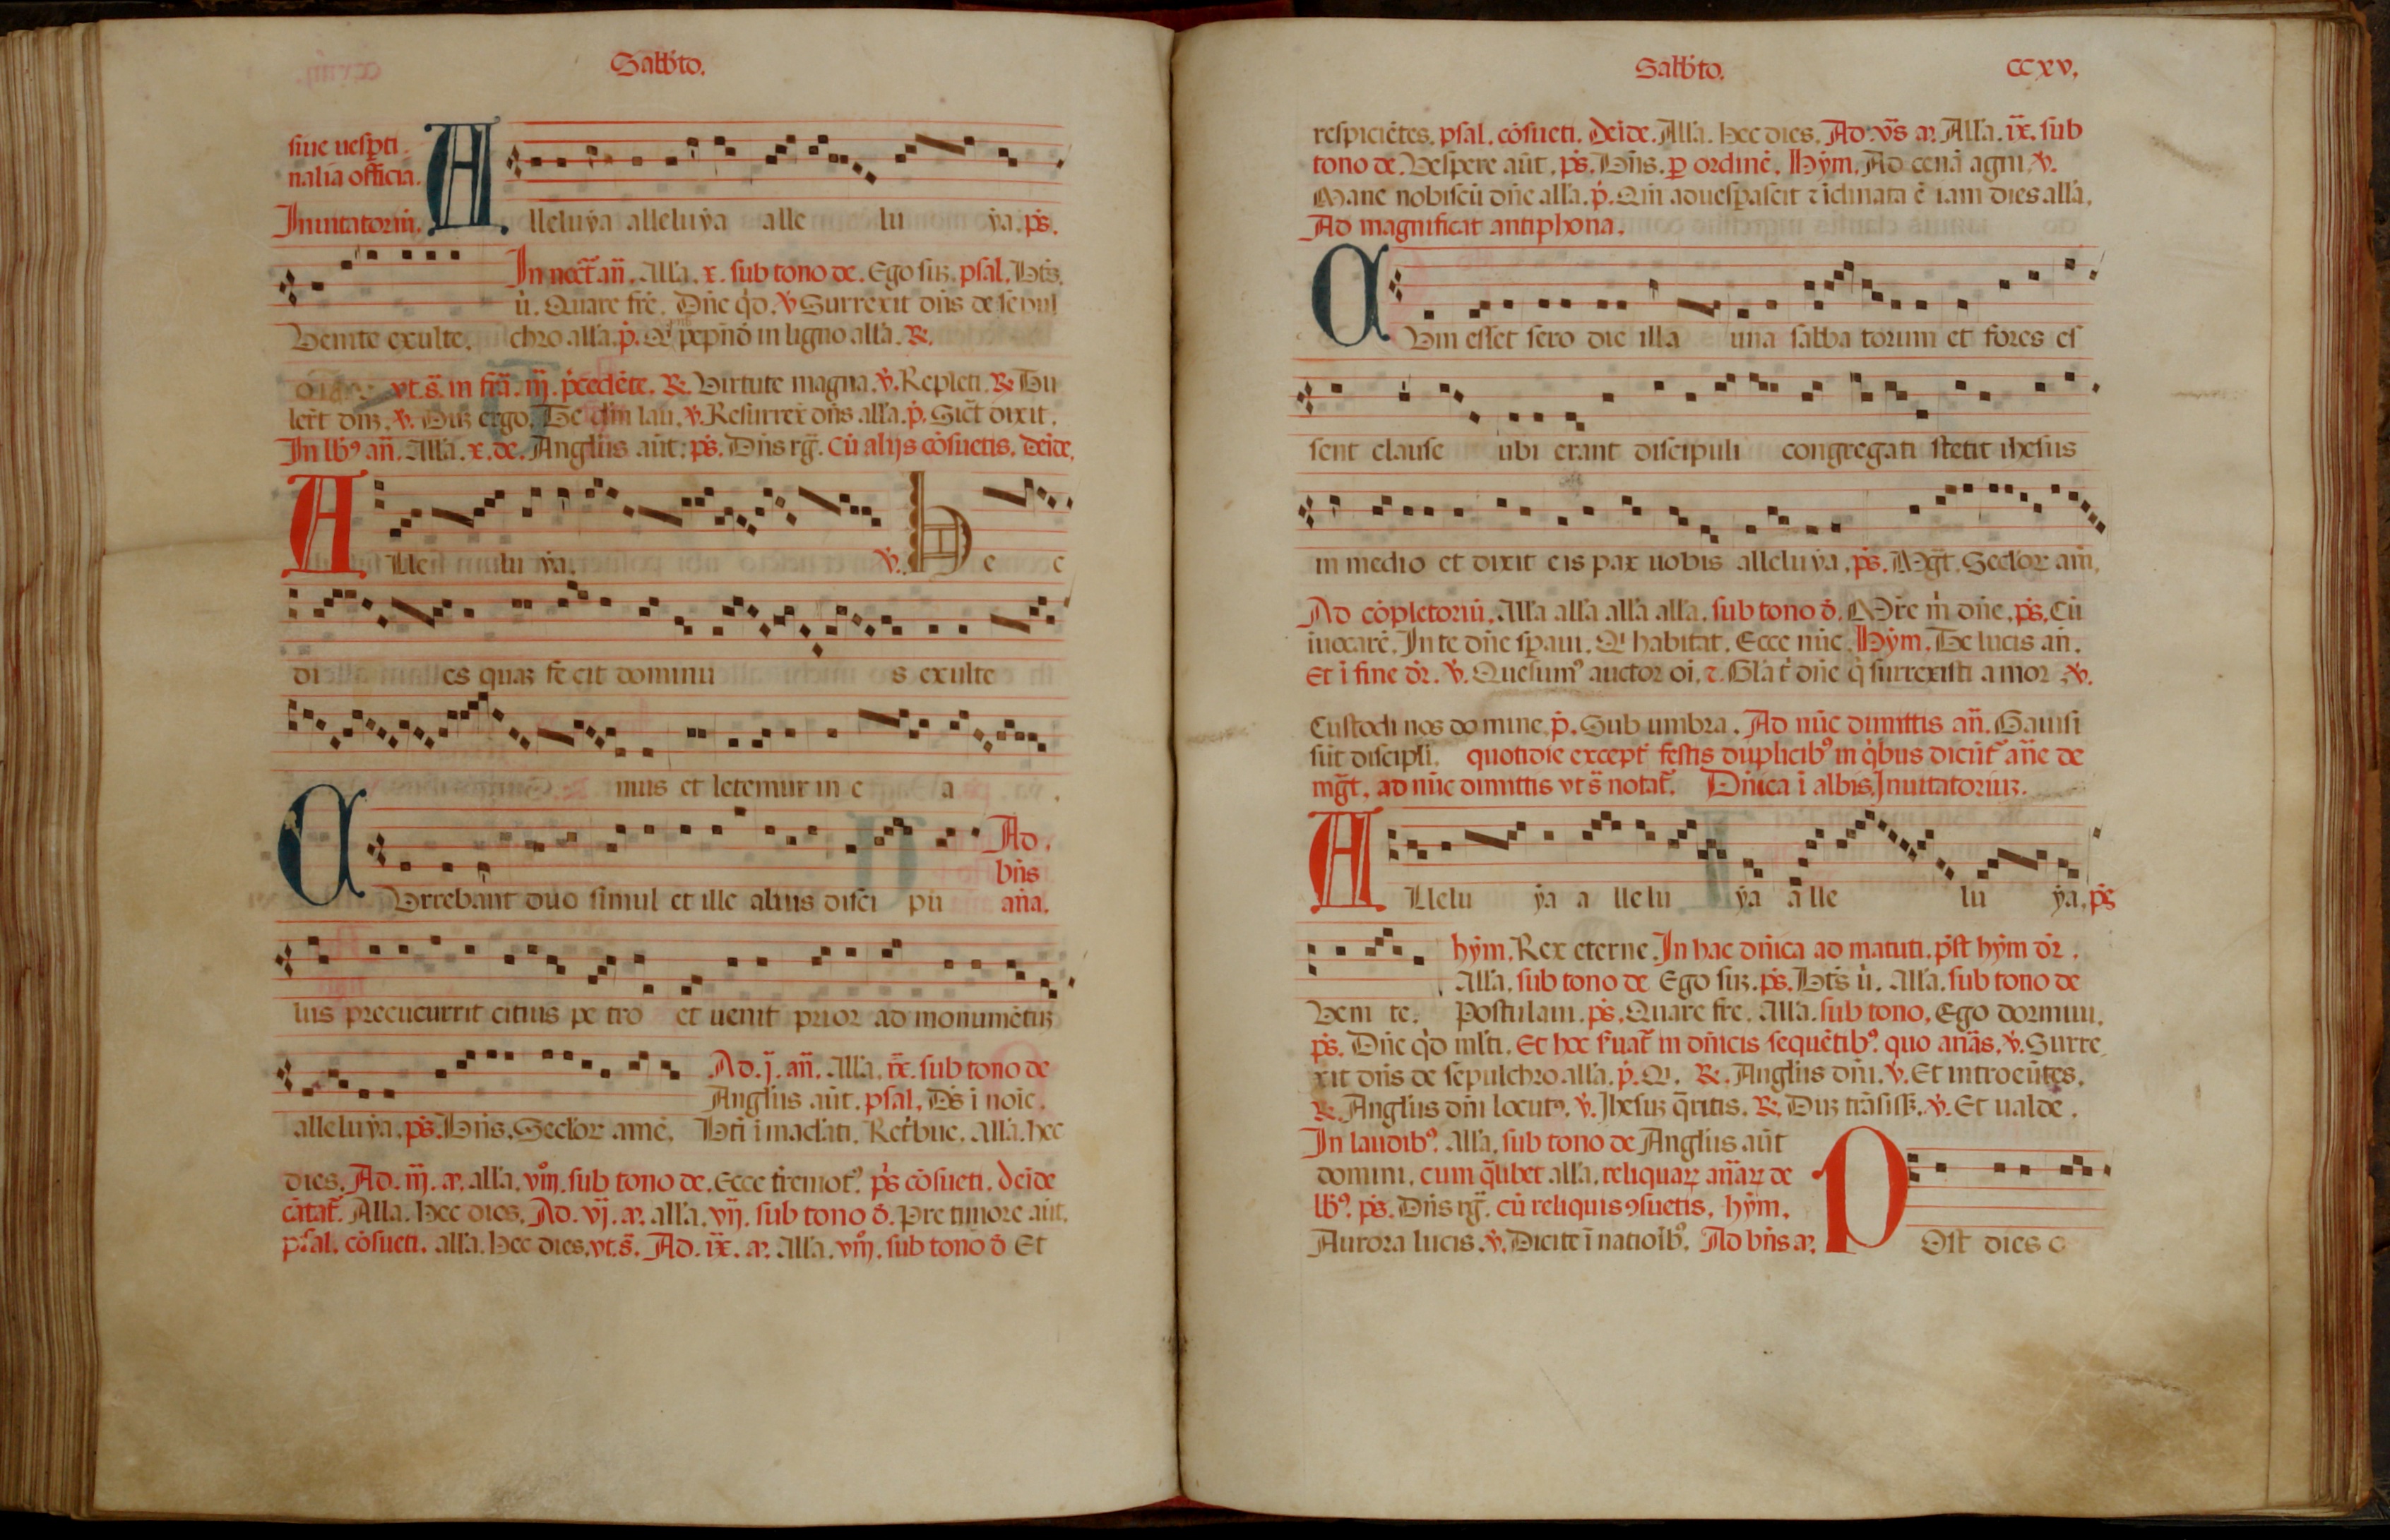 Sabb̄to.
siue uesp̱ti
nalia officia.
Inuitatoriū.
Alleluẏa alleluẏa alle lu ẏa. p̄s.
In noct̄ an̄. All'a. x. sub tono de. Ego suꝫ. psal. Bt̄s
u̇. Quare fre. Dn̄e q̇d. v̇ Surrexit dn̄s de sepul
Venite exulte. chro all'a. ṗ. Qi pepn̄d in ligno all'a. ℟.
vt. s̄. in frā. iij. p̄cedēte. ℟. Virtute magna. v̇. Repleti. ℟. Tu
ler̄t dn̄ꝫ. v̇. Duꝫ ergo. Te dm̄ lau. v̇. Resurrex̄ dn̄s all'a. ṗ. Sic̄t dixit.
In lb̄ꝰ an̄. All'a. x. de. Angl'us aūt. p̄s. Dn̄s rḡ. Cū alijs cōsuetis. Deīde.
Alle lu ẏa. v̇. He c
di es quaꝫ fe cit dominu s exulte
mus et letemur in e a .
Currebant duo simul et ille alius disci pu
Ad.
bn̄s
an̄a.
lus precucurrit citius pe tro et uenit prior ad monumētuꝫ
Ad. j. an̄. All'a. ix. sub tono de
Angl'us aūt. psal. Ds̄ i noīe.
alleluẏa. p̄s. Bn̄s. Secl'oꝝ amē. Bt̄i īmacl'ati. Ret̄bue. All'a. hec
dies. Ad. iij. a'. all'a. viij. sub tono de. Ecce t̄remotꝰ. p̄s cōsueti. deīde
cātat̄. All'a. hec dies. Ad. vj. a'. all'a. vij. sub tono d̄. Pre timore aūt.
psal. cōsueti. all'a. hec dies. vt. s̄. Ad. ix. a'. All'a. viij. sub tono d̄ Et
Sabb̄to. CCxv.
respiciētes. psal. cōsueti. deīde. All'a. hec dies. Ad. v̄s a'. All'a. ix. sub
tono de. Vespere aūt. p̄s. Bn̄s. ꝑ ordinē. Hẏm. Ad cenā agni. v̇.
Mane nobiscū dn̄e all'a. ṗ. Qm̄ aduesp̱ascit ⁊ īclinata ē iam dies all'a.
Ad magnificat antiphona.
Cum esset sero die illa una sabba torum et fores es
sent clause ubi erant discipuli congregati stetit ihesus
in medio et dixit eis pax uobis alleluẏa. p̄s. Mḡt. Secl'oꝝ am̄.
Ad cōpletoriū. All'a all'a all'a all'a. sub tono d̄. Mi̅re m̄ dn̄e. p̄s. Cū
iuocarē. In te dn̄e sp̱aui. Qi habitat. Ecce nūc. Hẏm. Te lucis an̄.
Et ī fine dr̄. v̇. Quesumꝰ auctor oi̅. ⁊. Gl'a t̄ dn̄e q̇ surrexisti a mor ⁊ v̇.
Custodi nos domine. ṗ. Sub umbra. Ad nūc dimittis an̄. Gauisi
sūt discipl'i. quotidie except̄ festis duplicibꝰ in q̇bus dicūt̄ an̄e de
mḡt. ad nūc dimittis vt s̄ notat̄. Dn̄ica ī albis. Inuitatoriuꝫ.
Allelu ẏa a llelu ẏa a lle lu ẏa. p̄s
hẏm. Rex eterne. In hac dn̄ica ad matuti. p̄st hẏm dr̄.
All'a. sub tono de Ego suꝫ. p̄s. Bt̄s u̇. All'a. sub tono de
Veni te. Postulaui. p̄s. Quare fre. All'a. sub tono. Ego dormiui.
p̄s. Dn̄e q̇d ml'ti. Et hoc s̄uat̄ in dn̄icis sequētibꝰ. quo an̄as. v̇. Surre
xit dn̄s de sepulchro. all'a. ṗ. Qi. ℟. Angl'us dn̄i. v̇. Et introeūtes.
℟. Angl'us dn̄i locutꝰ. v̇. Jhesuꝫ q̄ritis. ℟. Duꝫ trāsisꝫ. v̇. Et ualde.
In laudibꝰ. All'a. sub tono de Angl'us aūt
domini. cum q̄libet all'a. reliquaꝝ an̄aꝝ de
lb̄ꝰ. p̄s. Dn̄s rḡ. cū reliquis ꝯsuetis. hẏm.
Aurora lucis. v̇. Dicite ī natioi̅bꝰ. Ad bn̄s a'.
Post dies o